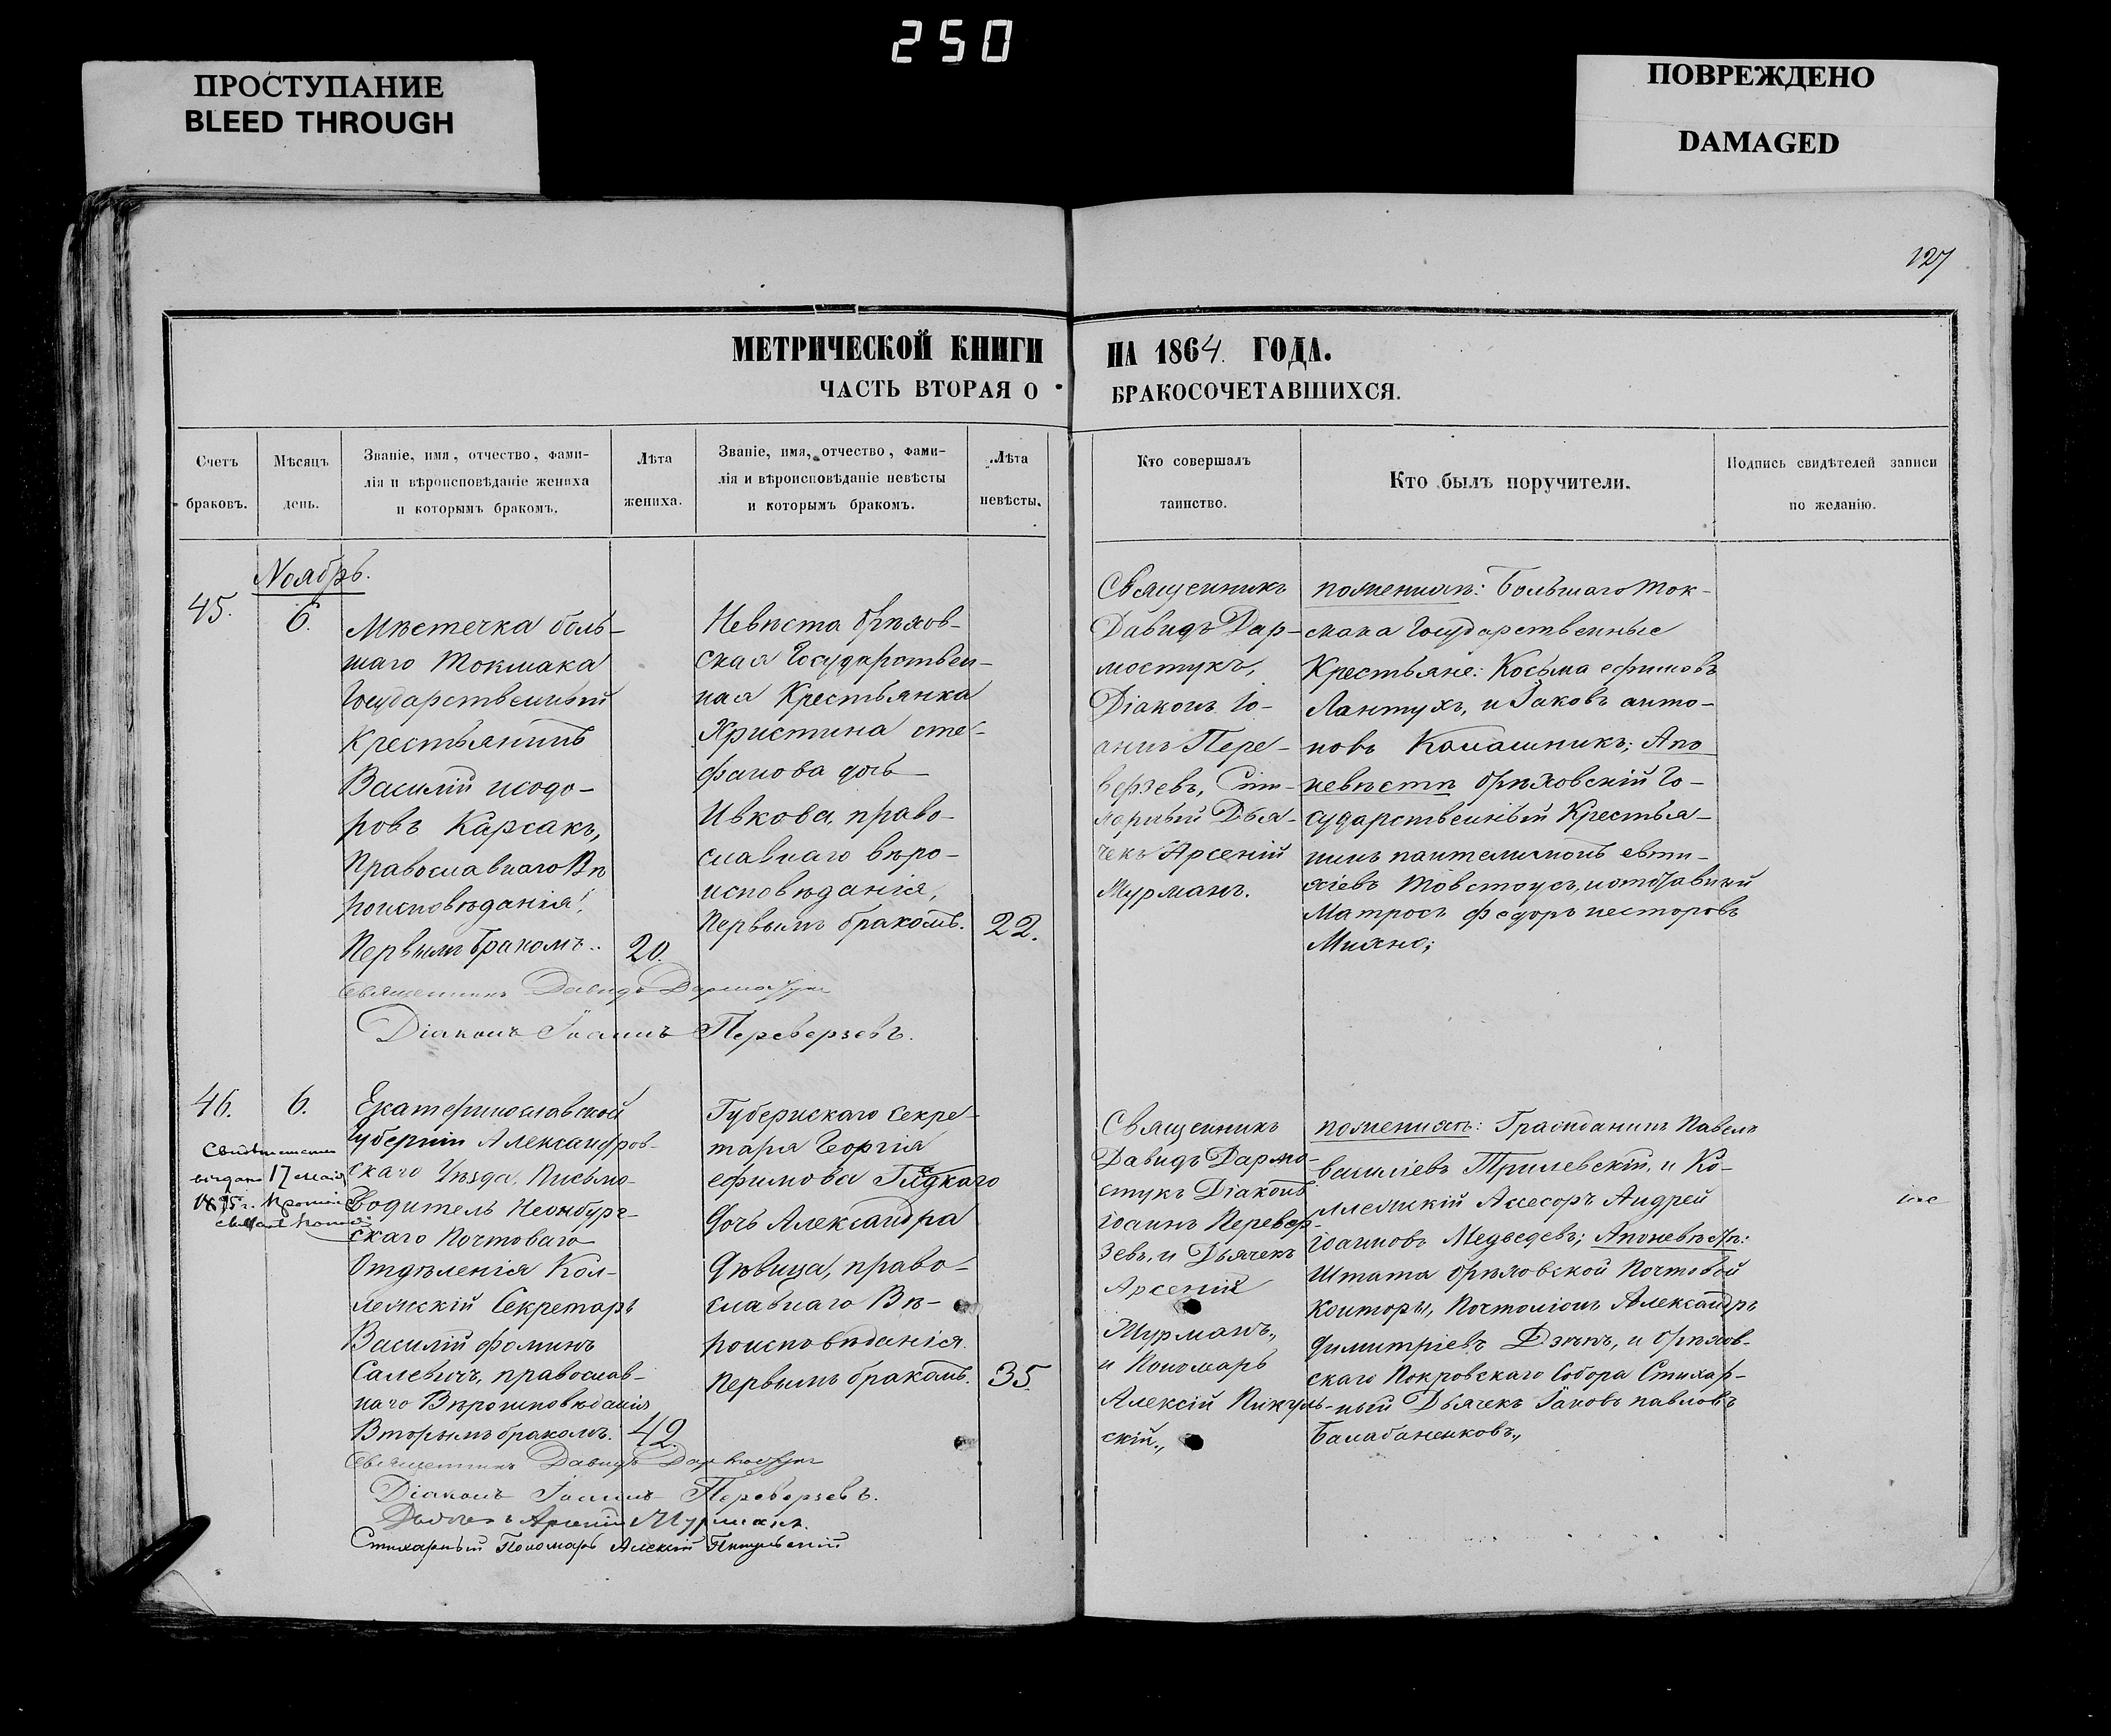 250
ПРОСТУПАНИЕ
BLEED THROUGH
ПОВРЕЖДЕНО
DAMAGED
127
МЕТРИЧЕСКОЙ КНИГИ НА 1864. ГОДА.
ЧАСТЬ ВТОРАЯ О БРАКОСОЧЕТАВШИХСЯ.
Счетъ
браковъ.
Мѣсяцъ
день.
Званіе, имя, отчество, фами-
лія и вѣроисповѣданіе жениха
и которымъ бракомъ.
Лѣта
жениха.
Званіе, имя, отчество, фами-
лія и вѣроисповѣданіе невѣсты
и которымъ бракомъ.
Лѣта
невѣсты.
Кто совершалъ
таинство.
Кто былъ поручители.
Подпись свидѣтелей записи
по желанію.
Ноябрь.
45.
6.
Мѣстечка боль-
шаго Токмака
Государственный
Крестьянинъ
Василій исодо-
ровъ Карсакъ,
Православнаго Вѣ
роисповѣданія,
Первымъ бракомъ..
20.
Невѣста Орѣхов-
ская Государствен-
ная Крестьянка
Христина сте-
фанова дочь
Ивкова, право-
славнаго вѣро-
исповѣданія,
Первымъ бракомъ.
22.
Священникъ
Давидъ Дар-
мостукъ,
Діаконъ Іо-
аннъ Пере-
верзевъ, Сти-
харный Дья-
чекъ Арсеній
Мурманъ.
поженихѣ: Большаго Ток-
мака Государственные
Крестьяне: Косьма ефимовъ
Лантухъ, и Іаковъ анто-
новъ Калашникъ; Апо
невѣстѣ Орѣховскій Го-
сударственный Крестья-
нинъ пантелимонъ евти-
хіевъ Товстоусъ, иотставный
Матросъ федоръ несторовъ
Михно;
Священникъ Давидъ Дармостукъ
Діаконъ Іоаннъ Переверзевъ.
46.
6.
17 Маія
Екатеринославской
Губерніи Александров-
скаго Уѣзда, Письмо-
водитель
скаго Почтоваго
Отдѣленія Кол-
лежскій Секретарь
Василій фоминъ
Салевичъ, православ-
наго Вѣроисповѣданія
Вторымъ бракомъ.
42.
Губернскаго Секре-
таря Георгія
ефимова
дочь Александра
Дѣвица, право-
славнаго Вѣ-
роисповѣданія
Первымъ бракомъ.
35.
Священникъ
Давидъ Дармо-
стукъ Діаконъ
Іоаннъ Перевер-
зевъ, и Дьячекъ
Арсеній
Мурманъ,
и Пономарь
Алексій Пикуль-
скій.,
поженихѣ: Гражданинъ Павелъ
василіевъ Трилевскій, и Ко-
ллежскій Ассесоръ Андрей
Іоанновъ Медведевъ; Апоневѣстѣ:
Штата Орѣховской Почтовой
Конторы, Почталіонъ Александръ
димитріевъ и Орѣхов-
скаго Покровскаго Собора Стихар-
ный Дьячекъ Іаковъ павловъ
Балабаненковъ.,
Священникъ Давидъ Дармостукъ
Діаконъ Іоаннъ Переверзевъ.
Дьячекъ Арсеній Мурманъ.
Стихарный Пономарь Алексій Пикульскій